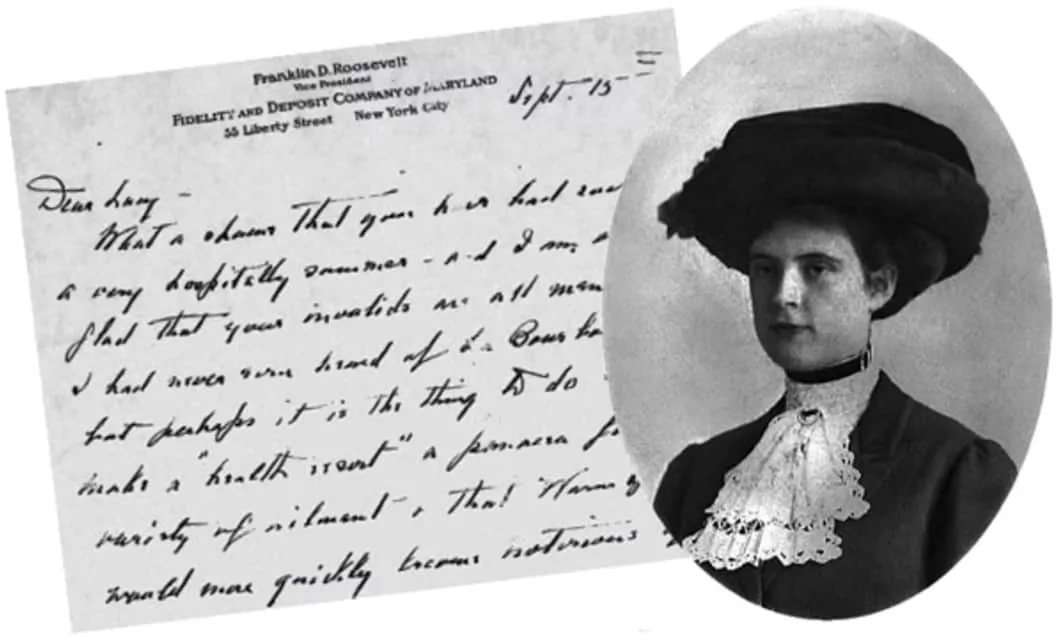 Franklin D. Roosevelt
Vice President
FIDELITY AND DEPOSIT COMPANY OF MARYLAND
55 Liberty Street New York City
Sept. 15
Dear Lucy -
What a shame that your had
a very hospitally summer - and I am
glad that your invalids are all
I had never even heard of La
but perhaps it is the thing to do
make a "health resort" a panacea
variety of ailments, that Warm
would more quickly become notorious